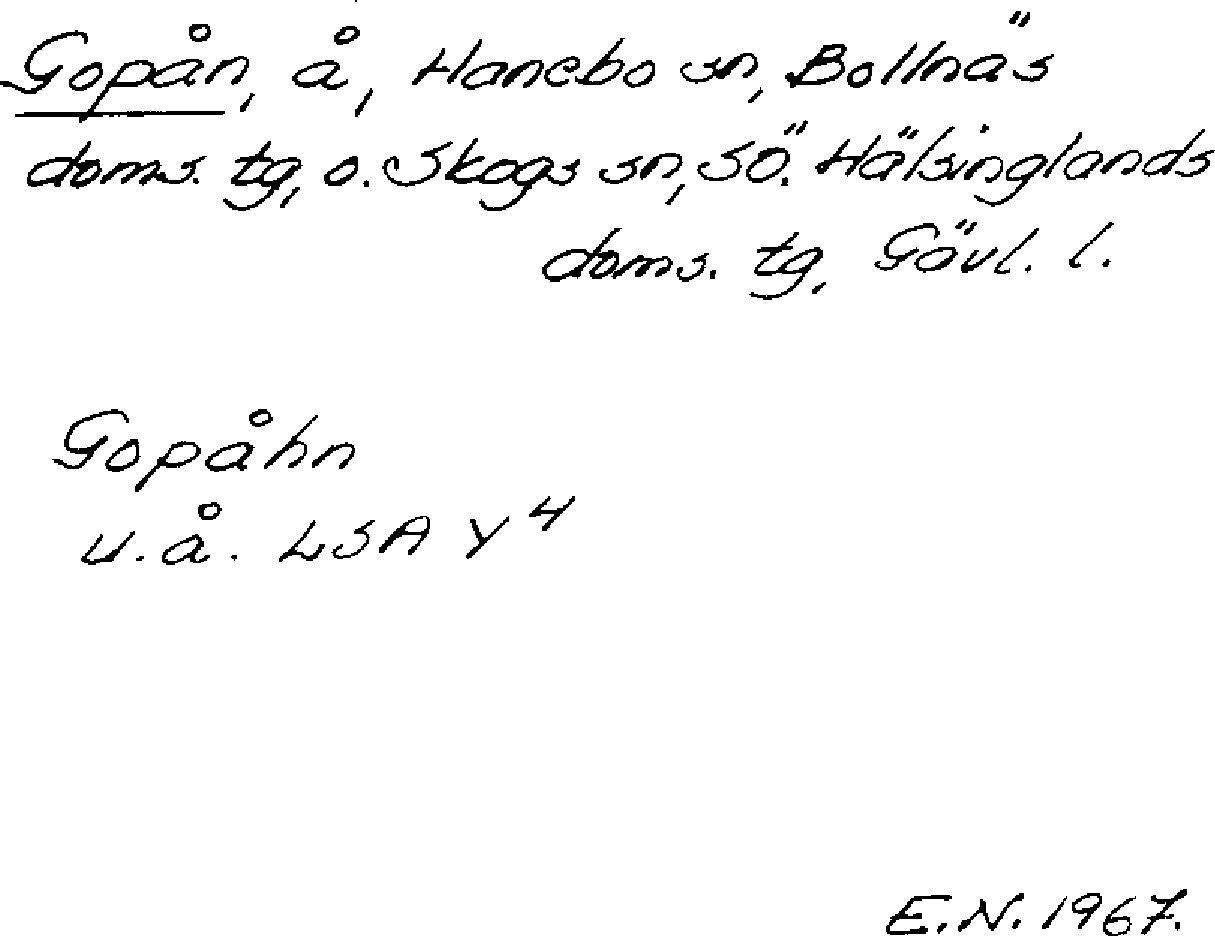 Gopån, å, Hanebo sn, Bollnäs
doms. tg, o. Skogs sn, SÖ. Hälsinglands
doms. tg, Gävl. l.
Gopåhn
u.å. LSA Y4
E.N. 1967.